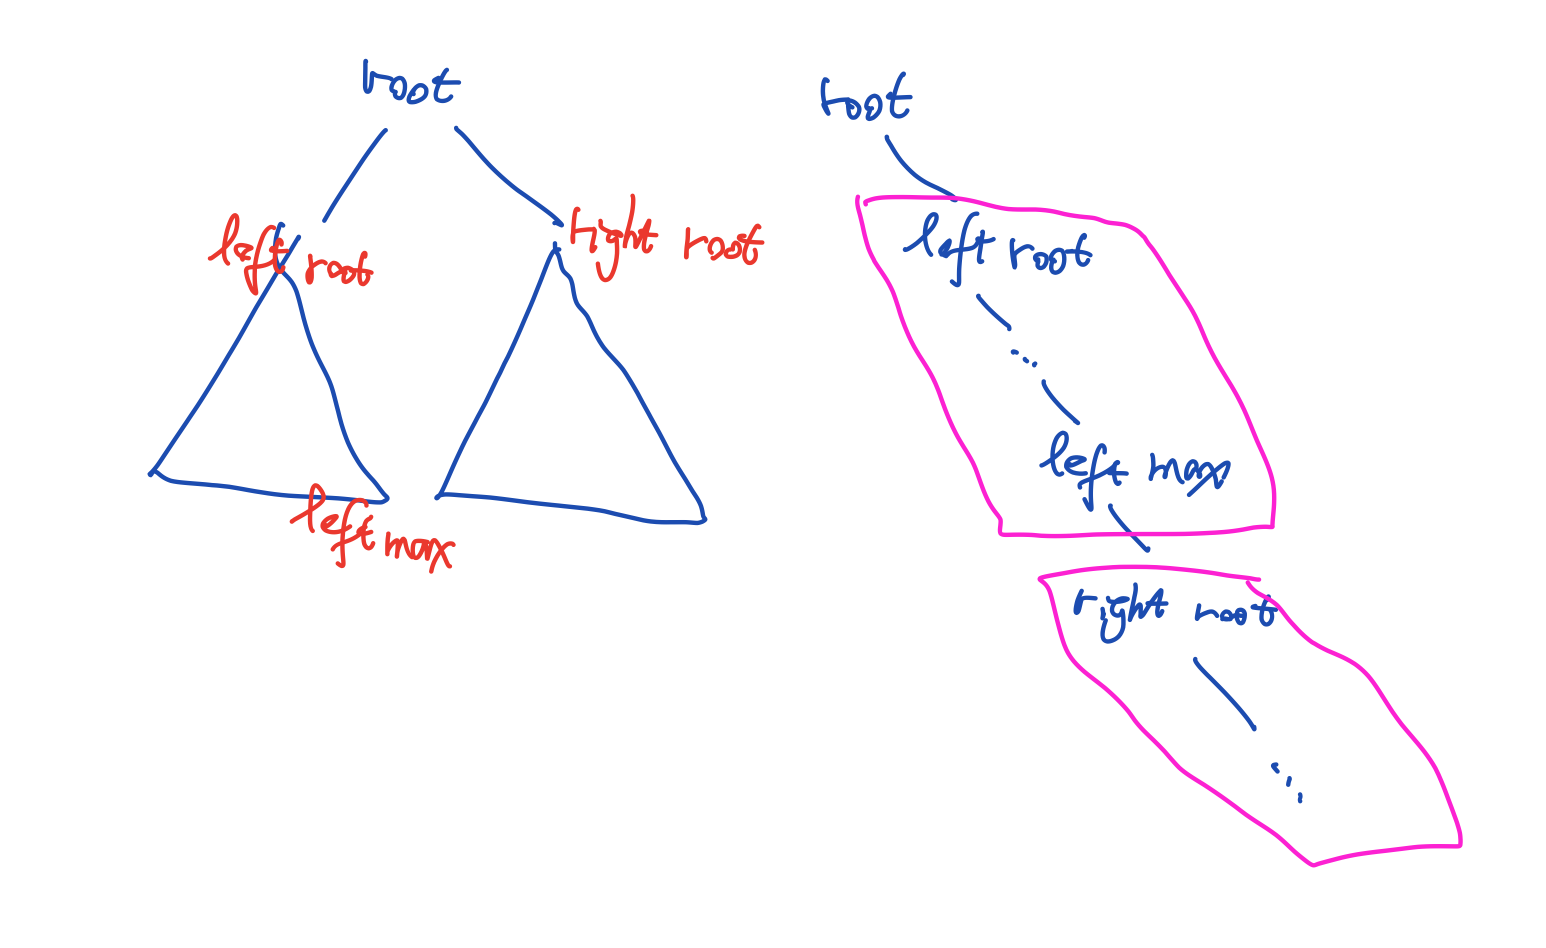 root
left root
right root
left max
root
left root
...
left max
right root
...